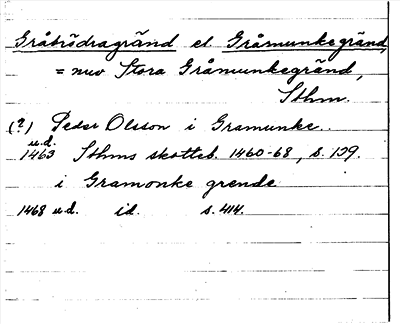 Gråbrödragränd el. Gråmunkegränd,
= nuv Stora Gråmunkegränd,
Sthm.
(?) Peder Olsson i Gramunke.
u.d.
1463 Sthms skotteb. 1460-68, s. 139.
i Gramonke grende
1468 u.d. id. s. 414.